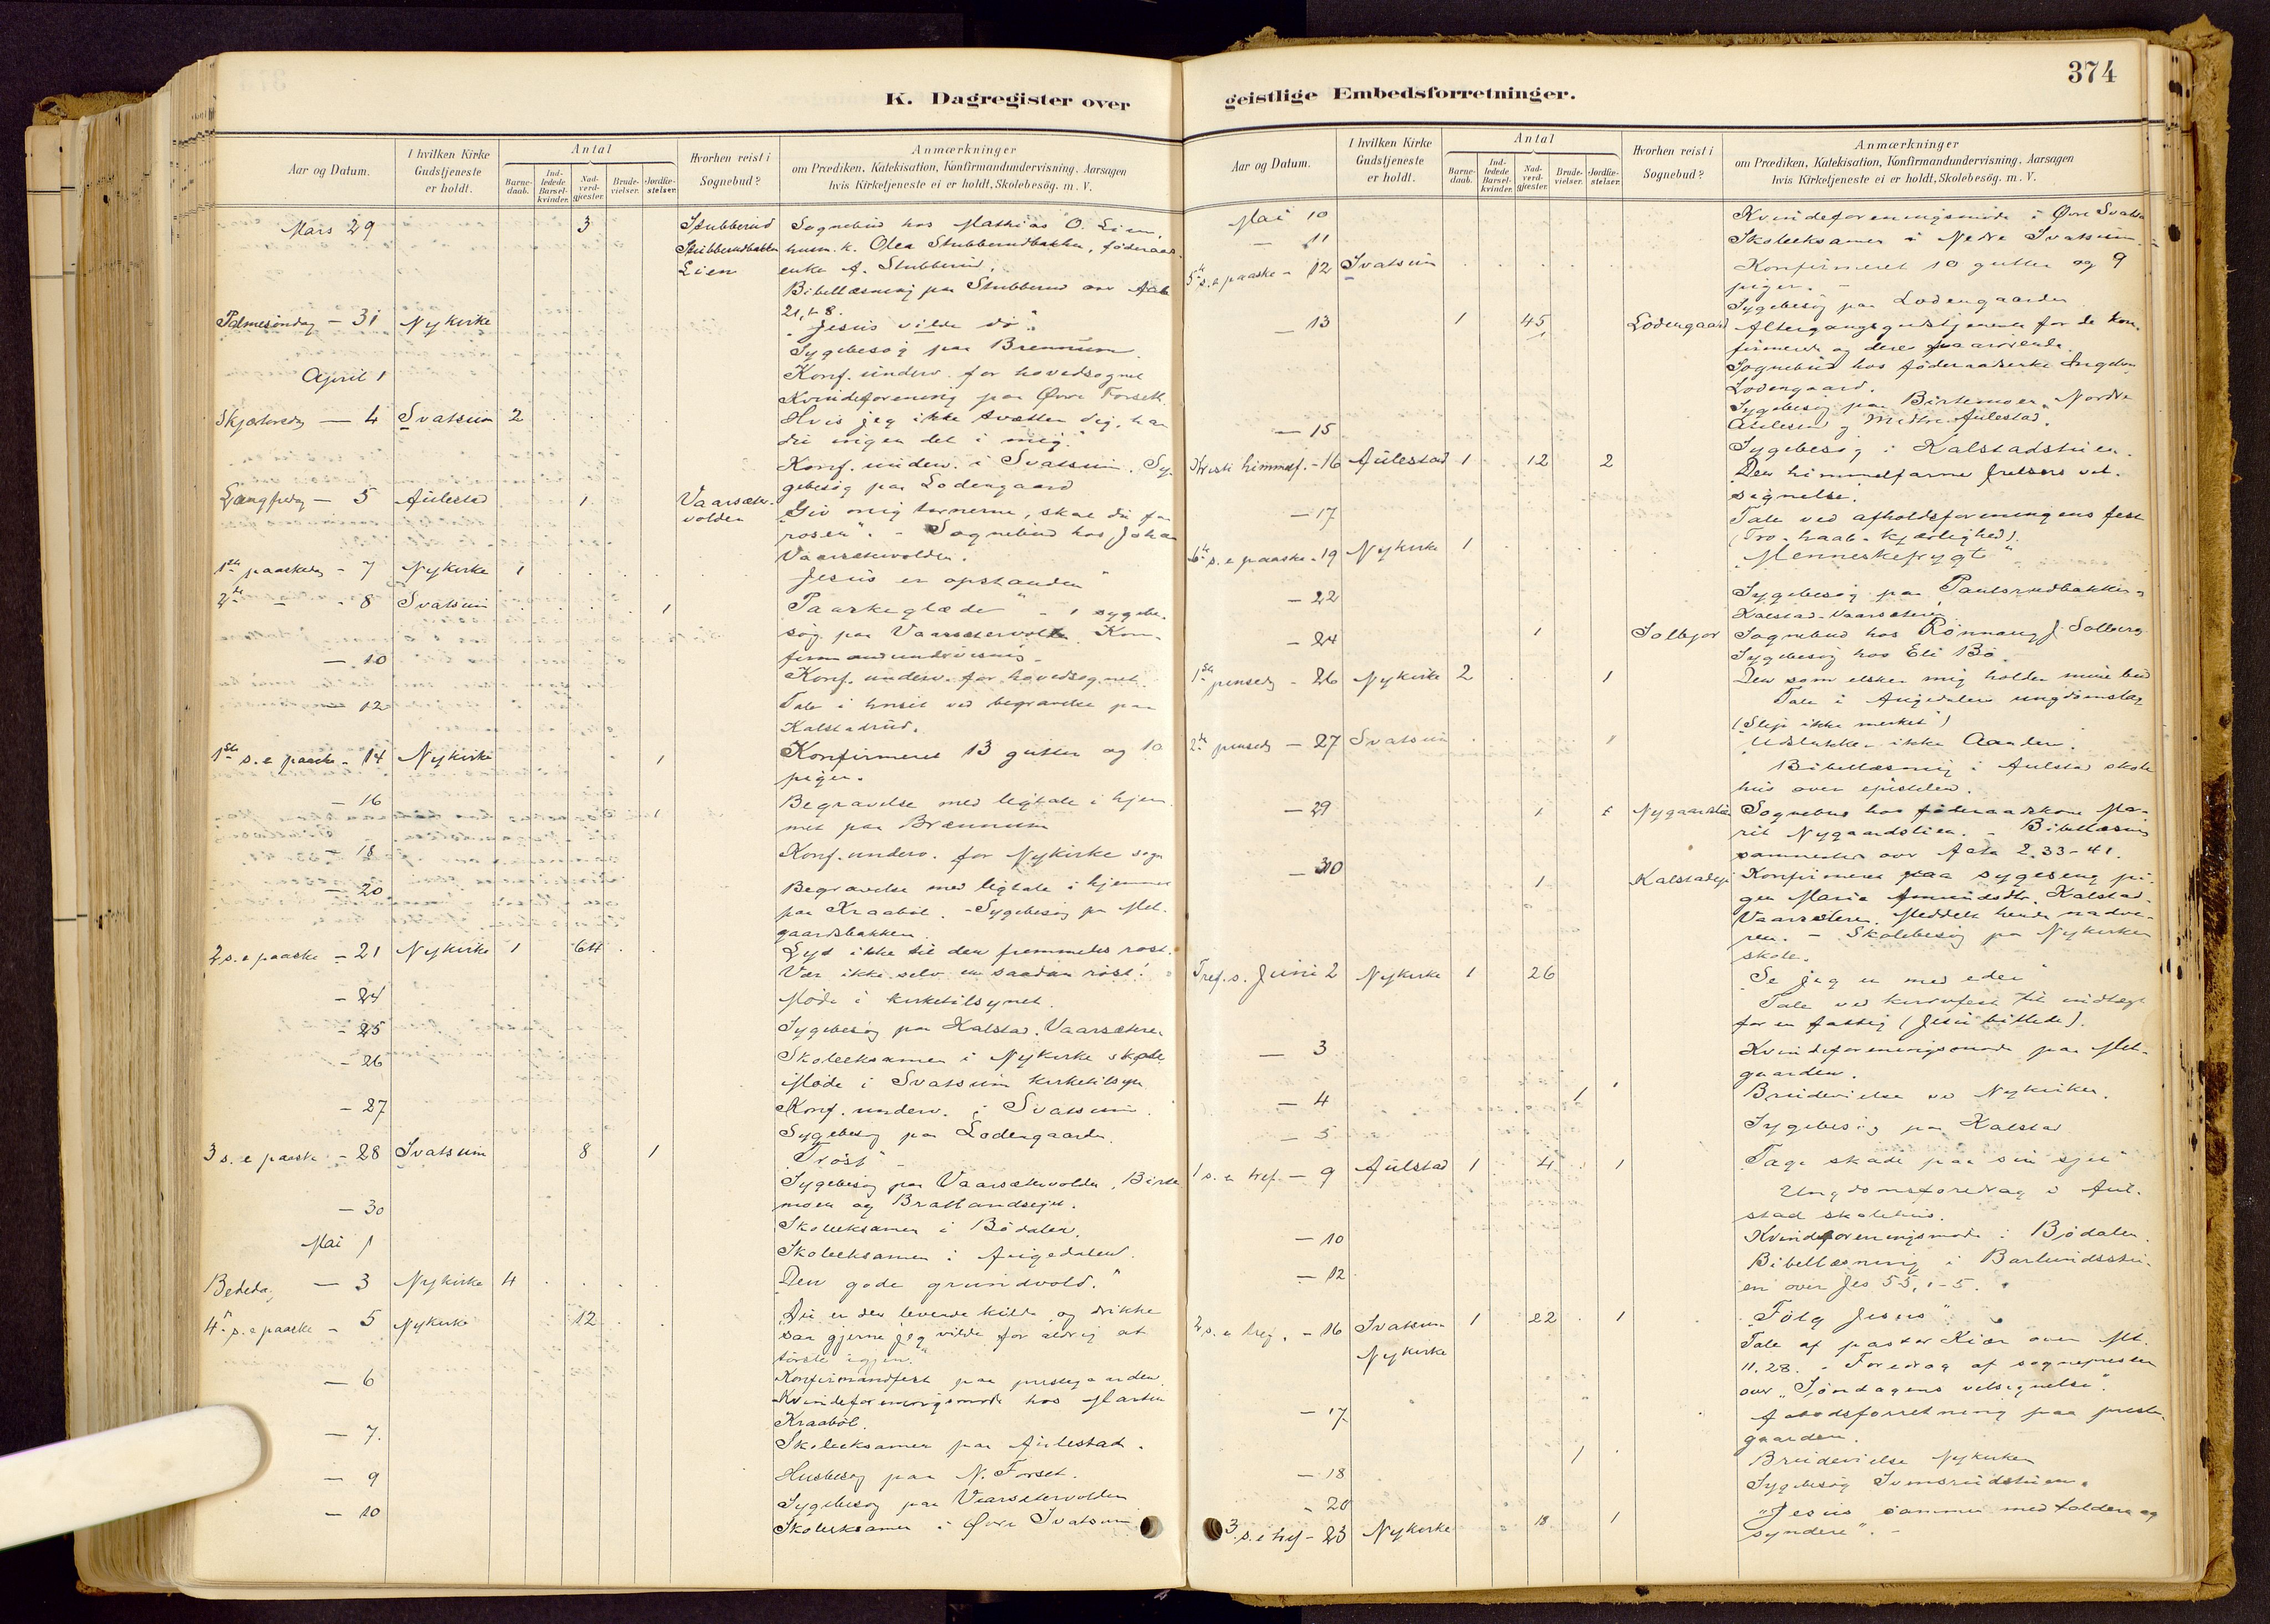 374
K. Dagregister over
Aar og Datum.
I hvilken Kirke Gudstjeneste er holdt.
Antal
Barne-daab.
Ind-ledede Barsel-kvinder.
Nad-verd-gjæster.
Brude-vielser.
Jordfæ-stelser.
Hvorhen reist i Sognebud?
Anmærkninger
om Prædiken, Katekisation, Konfirmandundervisning. Aarsagen
hvis Kirketjeneste ei er holdt, Skolebesøg. m. V.
Mars 29 3 Stubberud Sognebud hos Mathias O. Lien,
Stubberudbakken husm. k. Olea Stubberudbakken, føderaads
Lien enke A. Stubberud.
Bibellæsning paa Stubberud over
21, 1-8.
Palmesøndag — 31 Nykirke "Jesus vilde dø".
Sygebesøg paa Brennum.
April 1 Konf. underv. for hovedsognet
Kvindeforening paa Øvre Forseth.
Skjærtorsdag — 4 Svatsum 2 Hvis jeg ikke tvætter dig, har
du ingen del i mig"
Konf. underv. i Svatsum. Sy-
gebesøg paa Lodengaard
Langfredag — 5 Aulestad 1 Vaarsæter-
volden "Giv mig tornerne, skal du faa
rosen". - Sognebud hos Johan
Vaarsætervolden.
1ste paaskedag - 7 Nykirke 1 Jesus er opstanden"
2den - - 8 Svatsum 1 "Paaskeglæde" - 1 sygebe-
søg paa Vaarsætervolden. Kon-
firmandundervisning.
— 10 Konf. underv. for hovedsognet.
— 12 Tale i huset ved begravelse paa
Kalstadrud.
1ste s. e paaske - 14 Nykirke 1 Konfirmeret 13 gutter og 10
piger.
— 16 1 Begravelse med ligtale i hjem-
met paa Brænnum
— 18 Konf. underv. for Nykirke sogn
— 20 Begravelse med ligtale i hjemmet
paa Kraabøl. - Sygebesøg paa Mel-
gaardsbakken
2 s. e paaske - 21 Nykirke 1 64 Lyd ikke til den fremmedes røst.
Vær ikke selv en saadan røst!
- 24 Møde i kirketilsynet.
- 25 Sygebesøg paa Kalstad. Vaarsæteren
- 26 Skoleeksamen i Nykirke skole
Møde i Svatsum kirketilsyn
- 27 Konf. underv. i Svatsum.
Sygebesøg paa Lodengaarden.
3 s. e paaske - 28 Svatsum 8 1 "Trøst" -
Sygebesøg paa Vaarsætervolden, Birke
moen og Bratlandseiet.
- 30 Skoleeksamen i Bødalen.
Mai 1 Skoleeksamen i Augedalen.
Bededag — 3 Nykirke 4 "Den gode grundvold."
4de s. e paaske - 5 Nykirke 12 "Du er den levende kilde og drikke
saa gjerne jeg vilde for aldrig at
tørste igjen."
— 6 Konfirmandfest paa prestegaarden.
Kvindeforeningsmøde hos Martin
Kraabøl.
— 7. Skoleeksamen paa Aulestad.
— 9 Husbesøg paa N. Forset.
— 10 Sygebesøg paa Vaarsætervolden
Skoleeksamen i Øvre Svatsum.
geistlige Embedsforretninger.
Aar og Datum.
I hvilken Kirke Gudstjeneste er holdt.
Antal
Barne-daab.
Ind-ledede Barsel-kvinder.
Nad-verd-gjæster.
Brude-vielser.
Jordfæ-stelser.
Hvorhen reist i Sognebud?
Anmærkninger
om Prædiken, Katekisation, Konfirmandundervisning. Aarsagen
hvis Kirketjeneste ei er holdt, Skolebesøg. m. V.
Mai 10 Kvindeforeningsmøde i Øvre Svatsum
— 11 Skoleeksamen i Nedre Svatsum.
5te s. e paaske - 12 Svatsum Konfirmeret 10 gutter og 9
piger. -
Sygebesøg paa Lodengaarden
— 13 1 45 Lodengaard Altergangsgudstjeneste for de kon-
firmerede og deres paarørende.
1 Sognebud hos føderaadsenke Ingebor
Lodengaard.
Sygebesøg paa Birkemoen, Nordre
og Midtre Aulestad.
— 15 Sygebesøg i Kalstadstuen.
Kristi himmelf. - 16 Aulestad 1 12 2 "Den himmelfarne frelsers vel-
signelse".
— 17 Tale ved afholdsforeningens fest
(Tro - haab - kjærlighed).
6te s. e paaske - 19 Nykirke 1 "Menneskefrygt"
— 22 Sygebesøg paa Paulsrudbakken,
Kalstad-Vaarsæteren
— 24 1 Solbjør Sognebud hos Rønnaug J. Solberg
Sygebesøg hos Eli Bø.
1ste pinsedag - 26 Nykirke 2 1 Den som elsker mig holder mine bud
Tale i Augedalens ungdomslag
(Sleip ikke merket)
2den pinsedag - 27 Svatsum 1 "Udslukker ikke Aanden."
Bibellæsning i Aulstad skole
hus over epistelen.
— 29 1 1 Nygaardslien Sognebud hos føderaadskone Ma-
rit Nygaardslien. - Bibellæsning
sammesteds over Acta 2, 33-41.
— 30 1 Kalstadeje Konfirmeret paa sygeseng pi-
gen Marie Amundsdtr. Kalstad-
Vaarsæteren. Meddelt hende nadve-
ren. - Skolebesøg paa Nykirken
skole.
Tref. s. Juni 2 Nykirke 1 26 "Se jeg er med eder"
Tale ved kurvefest til indtægt
for en fattig (Jesu billede).
— 3 Kvindeforeningsmøde paa Mel-
gaarden.
— 4 1 Brudevielse ved Nykirken.
— 5 Sygebesøg paa Kalstad
1 s. e tref. — 9 Aulstad 1 4 1 "Tage skade paa sin sjel"
Ungdomsforedrag i Aul-
stad skolehus.
— 10 Kvindeforeningsmøde i Bødalen.
— 12 Bibellæsning i Barlundsstu-
en over Jes 55, 1-5.
2 s. e tref. - 16 Svatsum 1 22 1 "Følg Jesus".
Nykirke Tale af pastor Kiær over Mt.
11. 28. - Foredrag af sognepresten
over "Søndagens velsignelse".
— 17 Aabodsforretning paa preste-
gaarden.
— 18 1 Brudevielse Nykirken
Sygebesøg
- 20
3 s. e tref - 23 Nykirke 18 1 "Jesus sammen med toldere og
syndere". -